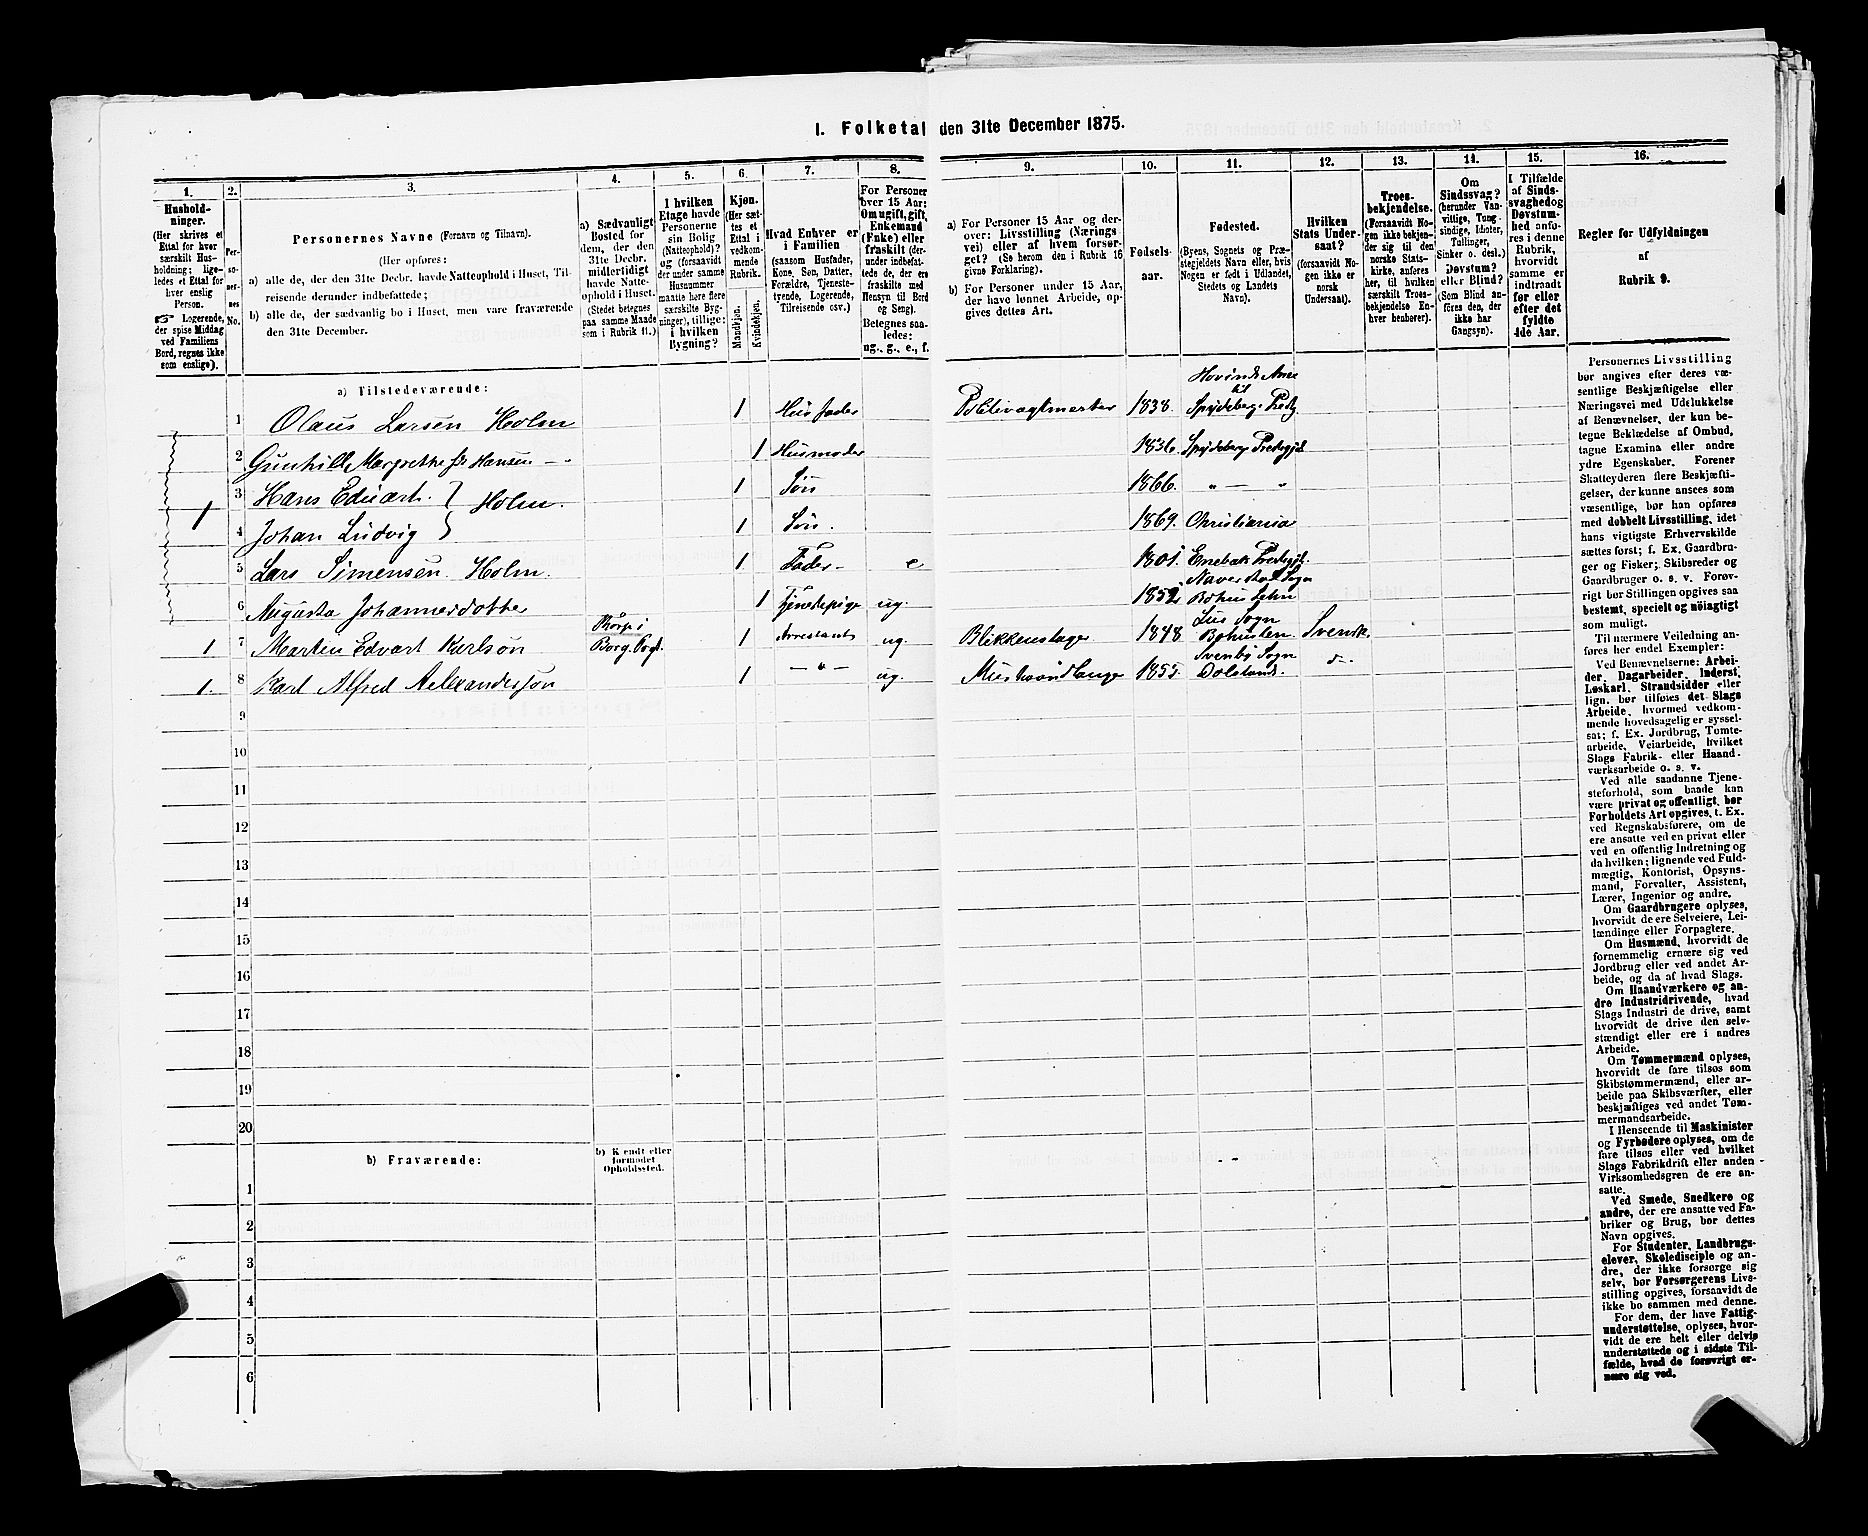 I. Folketal den 31te December 1875.
1. 2. 3. 4. 5. 6. 7. 8. 9. 10. 11. 12. 13. 14. 15. 16.
Hushold-
ninger.
(Her skrives et
Ettal for hver
særskilt Hus-
holdning; lige-
ledes et Ettal for
hver enslig
Person.
☞ Logerende,
der spise Middag
ved Familiens
Bord, regnes ikke
som enslige).
Per-
so-
ner-
nes
No.
Personernes Navne (Fornavn og Tilnavn).
(Her opføres:
a) alle de, der den 31te Decbr. havde Natteophold i Huset, Til-
reisende derunder indbefattede;
b) alle de, der sædvanlig bo i Huset, men vare fraværende
den 31te December.
a) Sædvanligt
Bosted for
dem, der den
31te Decbr.
midlertidigt
havde Natte-
ophold i Huset.
(Stedet betegnes
paa samme Maade
som i Rubrik 11.)
I hvilken
Etage havde
Personerne
sin Bolig
(Natteophold)?
og (forsaavidt
der under samme
Husnummer
maatte høre flere
særskilte Byg-
ninger), tillige:
i hvilken
Bygning?
Kjøn.
(Her sæt-
tes et
Ettal i
vedkom-
mende
Rubrik.
Mandkjøn.
Kvindekjøn.
Hvad Enhver er
i Familien
(saasom Husfader,
Kone, Søn, Datter,
Forældre, Tjeneste-
tyende, Logerende,
Tilreisende osv.)
For Personer
over 15 Aar:
Om ugift, gift,
Enkemand
(Enke) eller
fraskilt (der-
under indbefat-
tede de, der ere
fraskilte med
Hensyn til Bord
og Seng).
Betegnes saa-
ledes:
ug., g., e., f.
a) For Personer 15 Aar og der-
over: Livsstilling (Nærings
vei) eller af hvem forsør-
get? (Se herom den i Rubrik 16
givne Forklaring).
b) For Personer under 15 Aar,
der have lønnet Arbeide, op-
gives dettes Art.
Fødsels-
aar.
Fødested.
(Byens, Sognets og Præ-
stegjeldets Navn eller, hvis
Nogen er født i Udlandet,
Stedets og Landets
Navn).
Hvilken
Stats Under-
saat?
(forsaavidt No-
gen ikke er
norsk
Undersaat).
Troes-
bekjendelse.
(Forsaavidt No-
gen ikke bekjen-
der sig til den
norske Stats-
kirke, anføres
her, til hvilken
særskilt Troes-
bekjendelse En-
hver henhører).
Om
Sindssvag?
(herunder Van-
vittige, Tung-
sindige, Idioter,
Tullinger,
Sinker o. desl.)
Døvstum?
eller Blind?
(Som Blind an-
føres den, der
ikke har
Gangsyn).
I Tilfælde
af Sinds-
svaghed og
Døvstum-
hed anfø-
res i denne
Rubrik,
hvorvidt
samme er
indtraadt
før eller
efter det
fyldte
4de Aar.
Regler for Udfyldningen
af
Rubrik 9.
a) Tilstedeværende:
1 Olaus Larsen Holm 1 Husfader Politivagtmester 1838. Spydeberg
2 Gunhild Margrethe Hansen 1 Husmoder 1836. Spydeberg
3 Hans Eduart } Holm. 1 Søn 1866. " — "
1
4 Johan Ludvig } 1 Søn. 1869. Christiania
5 Lars Simensen Holm. 1 Fader e 1801. Enebak
6 Augusta Johannesdotter 1 Tjenestepige ug. 1852 Naverstad Sogn Bohus Lehn
1 7 Martin Edvart Karlson 1 Arrestant ug. Blikkenslager 1848. Sogn Bohuslen Svensk.
1. 8 Karl Alfred Aelexandersson 1 — " — ug. 1855. Sogn Dalsland. do.
9
10
11
12
13
14
15
16
17
18
19
20
b) Fraværende:
b) Kendt eller
formodet
Opholdssted.
1
2
3
4
5
6
Personernes Livsstilling
bør angives efter deres væ-
sentlige Beskjæftigelse eller
Næringsvei med Udelukkelse
af Benævnelser, der kun be-
tegne Beklædelse af Ombud,
tagne Examina eller andre
ydre Egenskaber. Forener
Skatteyderen flere Beskjæfti-
gelser, der kunne ansees som
væsentlige, bør han opføres
med dobbelt Livsstilling, idet
hans vigtigste Erhvervskilde
sættes først; f. Ex. Gaardbru-
ger og Fisker; Skibsreder og
Gaardbruger o. s. v. Forøv-
rigt bør Stillingen opgives saa
bestemt, specielt og nøiagtigt
som muligt.
Til nærmere Veiledning an-
føres her endel Exempler:
Ved Benævnelserne: Arbei-
der, Dagarbeider, Inderst,
Løskarl, Strandsidder eller
lign. bør tilføies det Slags
Arbeide, hvormed vedkom-
mende hovedsagelig er syssel-
sat; f. Ex. Jordbrug, Tomte-
arbeide, Veiarbeide, hvilket
Slags Fabrik- eller Haand-
værksarbeide o. s. v.
Ved alle saadanne Tjene-
steforhold, som baade kan
være privat og offentligt, bør
Forholdets Art opgives, t. Ex.
ved Regnskabsførere, om de
ere ansatte ved en privat eller
ved en offentlig Indretning og
da hvilken; lignende ved Fuld-
mægtig, Kontorist, Opsyns-
mand, Forvalter, Assistent,
Lærer, Ingeniør og andre.
Om Gaardbrugere oplyses,
hvorvidt de ere Selveiere, Lei-
lændinge eller Forpagtere.
Om Husmænd, hvorvidt de
fornemmelig ernære sig ved
Jordbrug eller ved andet Ar-
beide, og da af hvad Slags.
Om Haandværkere og an-
dre Industridrivende, hvad
Slags Industri de drive, samt
hvorvidt de drive den selv-
stændigt eller ere i andres
Arbeide.
Om Tømmermænd oplyses,
hvorvidt de fare tilsøs som
Skibstømmermænd, eller ar-
beide paa Skibsværfter, eller
beskjæftiges ved andet Tøm-
mermandsarbeide.
I Henseende til Maskinister
og Fyrbødere oplyses, om de
fare tilsøs eller ved hvilket
Slags Fabrikdrift eller anden
Virksomhedsgren de ere an-
satte.
Ved Smede, Snedkere og
andre, der ere ansatte ved Fa-
briker og Brug, bør dettes
Navn opgives.
For Studenter, Landbrugs-
elever, Skoledisciple og an-
dre, der ikke forsørge sig
selv, bør Forsørgerens Livs-
stilling opgives, forsaavidt de
ikke bo sammen med denne.
For dem, der have Fattig-
understøttelse, oplyses, hvor-
vidt de ere helt eller delvis
understøttede og i sidste Til-
fælde, hvad de forøvrigt er-
nære sig ved.